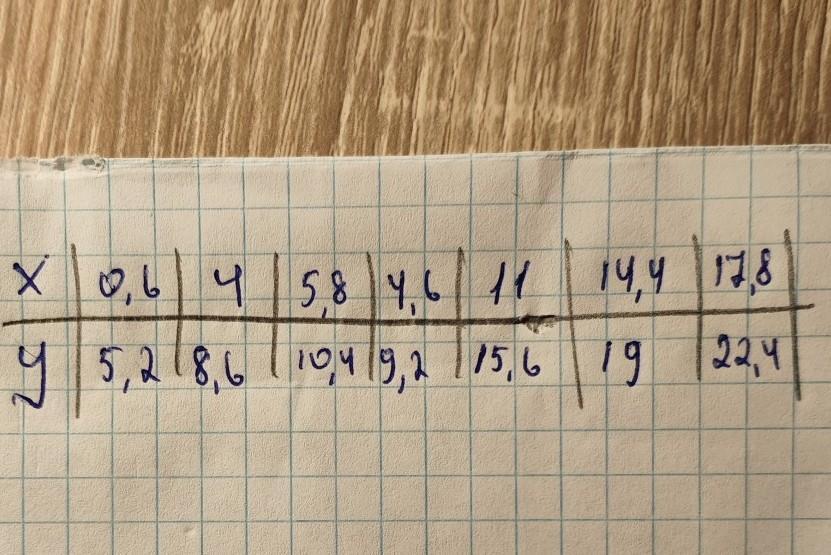 x 0,6 4 5,8 4,6 11 14,4 17,8
y 5,2 8,6 10,4 9,2 15,6 19 22,4